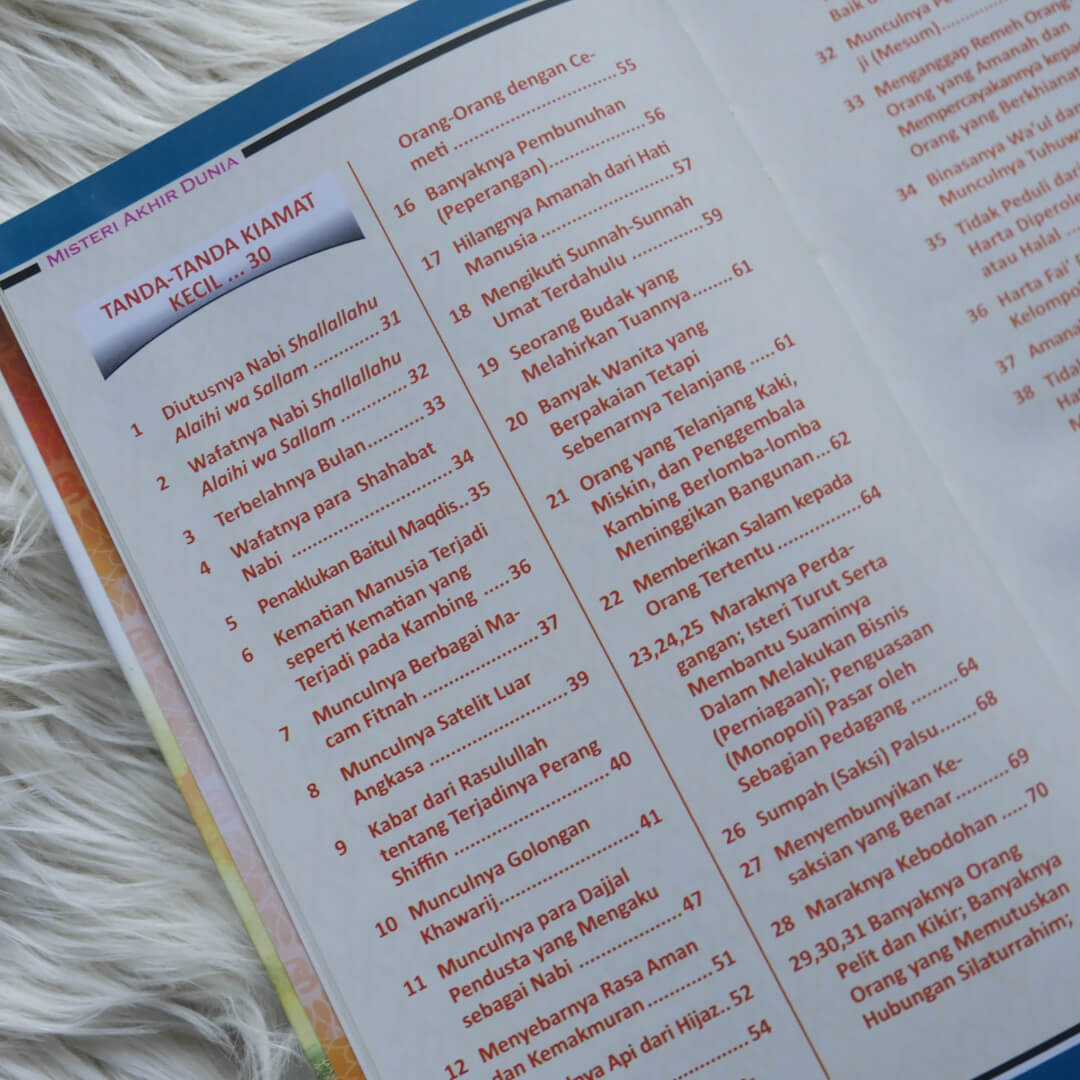 MISTERI AKHIR DUNIA
TANDA-TANDA KIAMAT
KECIL ... 30
1 Diutusnya Nabi Shallallahu
Alaihi wa Sallam ............ 31
2 Wafatnya Nabi Shallallahu
Alaihi wa Sallam ............ 32
3 Terbelahnya Bulan.......... 33
4 Wafatnya para Shahabat
Nabi ............................ 34
5 Penaklukan Baitul Maqdis.. 35
6 Kematian Manusia Terjadi
seperti Kematian yang
Terjadi pada Kambing ..... 36
7 Munculnya Berbagai Ma-
cam Fitnah .................... 37
8 Munculnya Satelit Luar
Angkasa ........................ 39
9 Kabar dari Rasulullah
tentang Terjadinya Perang
Shiffin ........................... 40
10 Munculnya Golongan
Khawarij........................ 41
11 Munculnya para Dajjal
Pendusta yang Mengaku
sebagai Nabi .................. 47
12 Menyebarnya Rasa Aman
dan Kemakmuran ........... 51
Api dari Hijaz.. 52
54
Orang-Orang dengan Ce-
meti ............................. 55
16 Banyaknya Pembunuhan
(Peperangan)................. 56
17 Hilangnya Amanah dari Hati
Manusia ........................ 57
18 Mengikuti Sunnah-Sunnah
Umat Terdahulu ............. 59
19 Seorang Budak yang
Melahirkan Tuannya....... 61
20 Banyak Wanita yang
Berpakaian Tetapi
Sebenarnya Telanjang ..... 61
21 Orang yang Telanjang Kaki,
Miskin, dan Penggembala
Kambing Berlomba-lomba
Meninggikan Bangunan... 62
22 Memberikan Salam kepada
Orang Tertentu............... 64
23,24,25 Maraknya Perda-
gangan; Isteri Turut Serta
Membantu Suaminya
Dalam Melakukan Bisnis
(Perniagaan); Penguasaan
(Monopoli) Pasar oleh
Sebagian Pedagang ......... 64
26 Sumpah (Saksi) Palsu...... 68
27 Menyembunyikan Ke-
saksian yang Benar ......... 69
28 Maraknya Kebodohan ..... 70
29,30,31 Banyaknya Orang
Pelit dan Kikir; Banyaknya
Orang yang Memutuskan
Hubungan Silaturrahim;
Baik
32 Munculnya
ji (Mesum)
33 Menganggap Remeh Orang
Orang yang Amanah dan
Mempercayakannya
Orang yang
34 Binasanya Wa'ul
Munculnya
35 Tidak Peduli dari
Harta
atau Halal
36 Harta Fai'
37
38